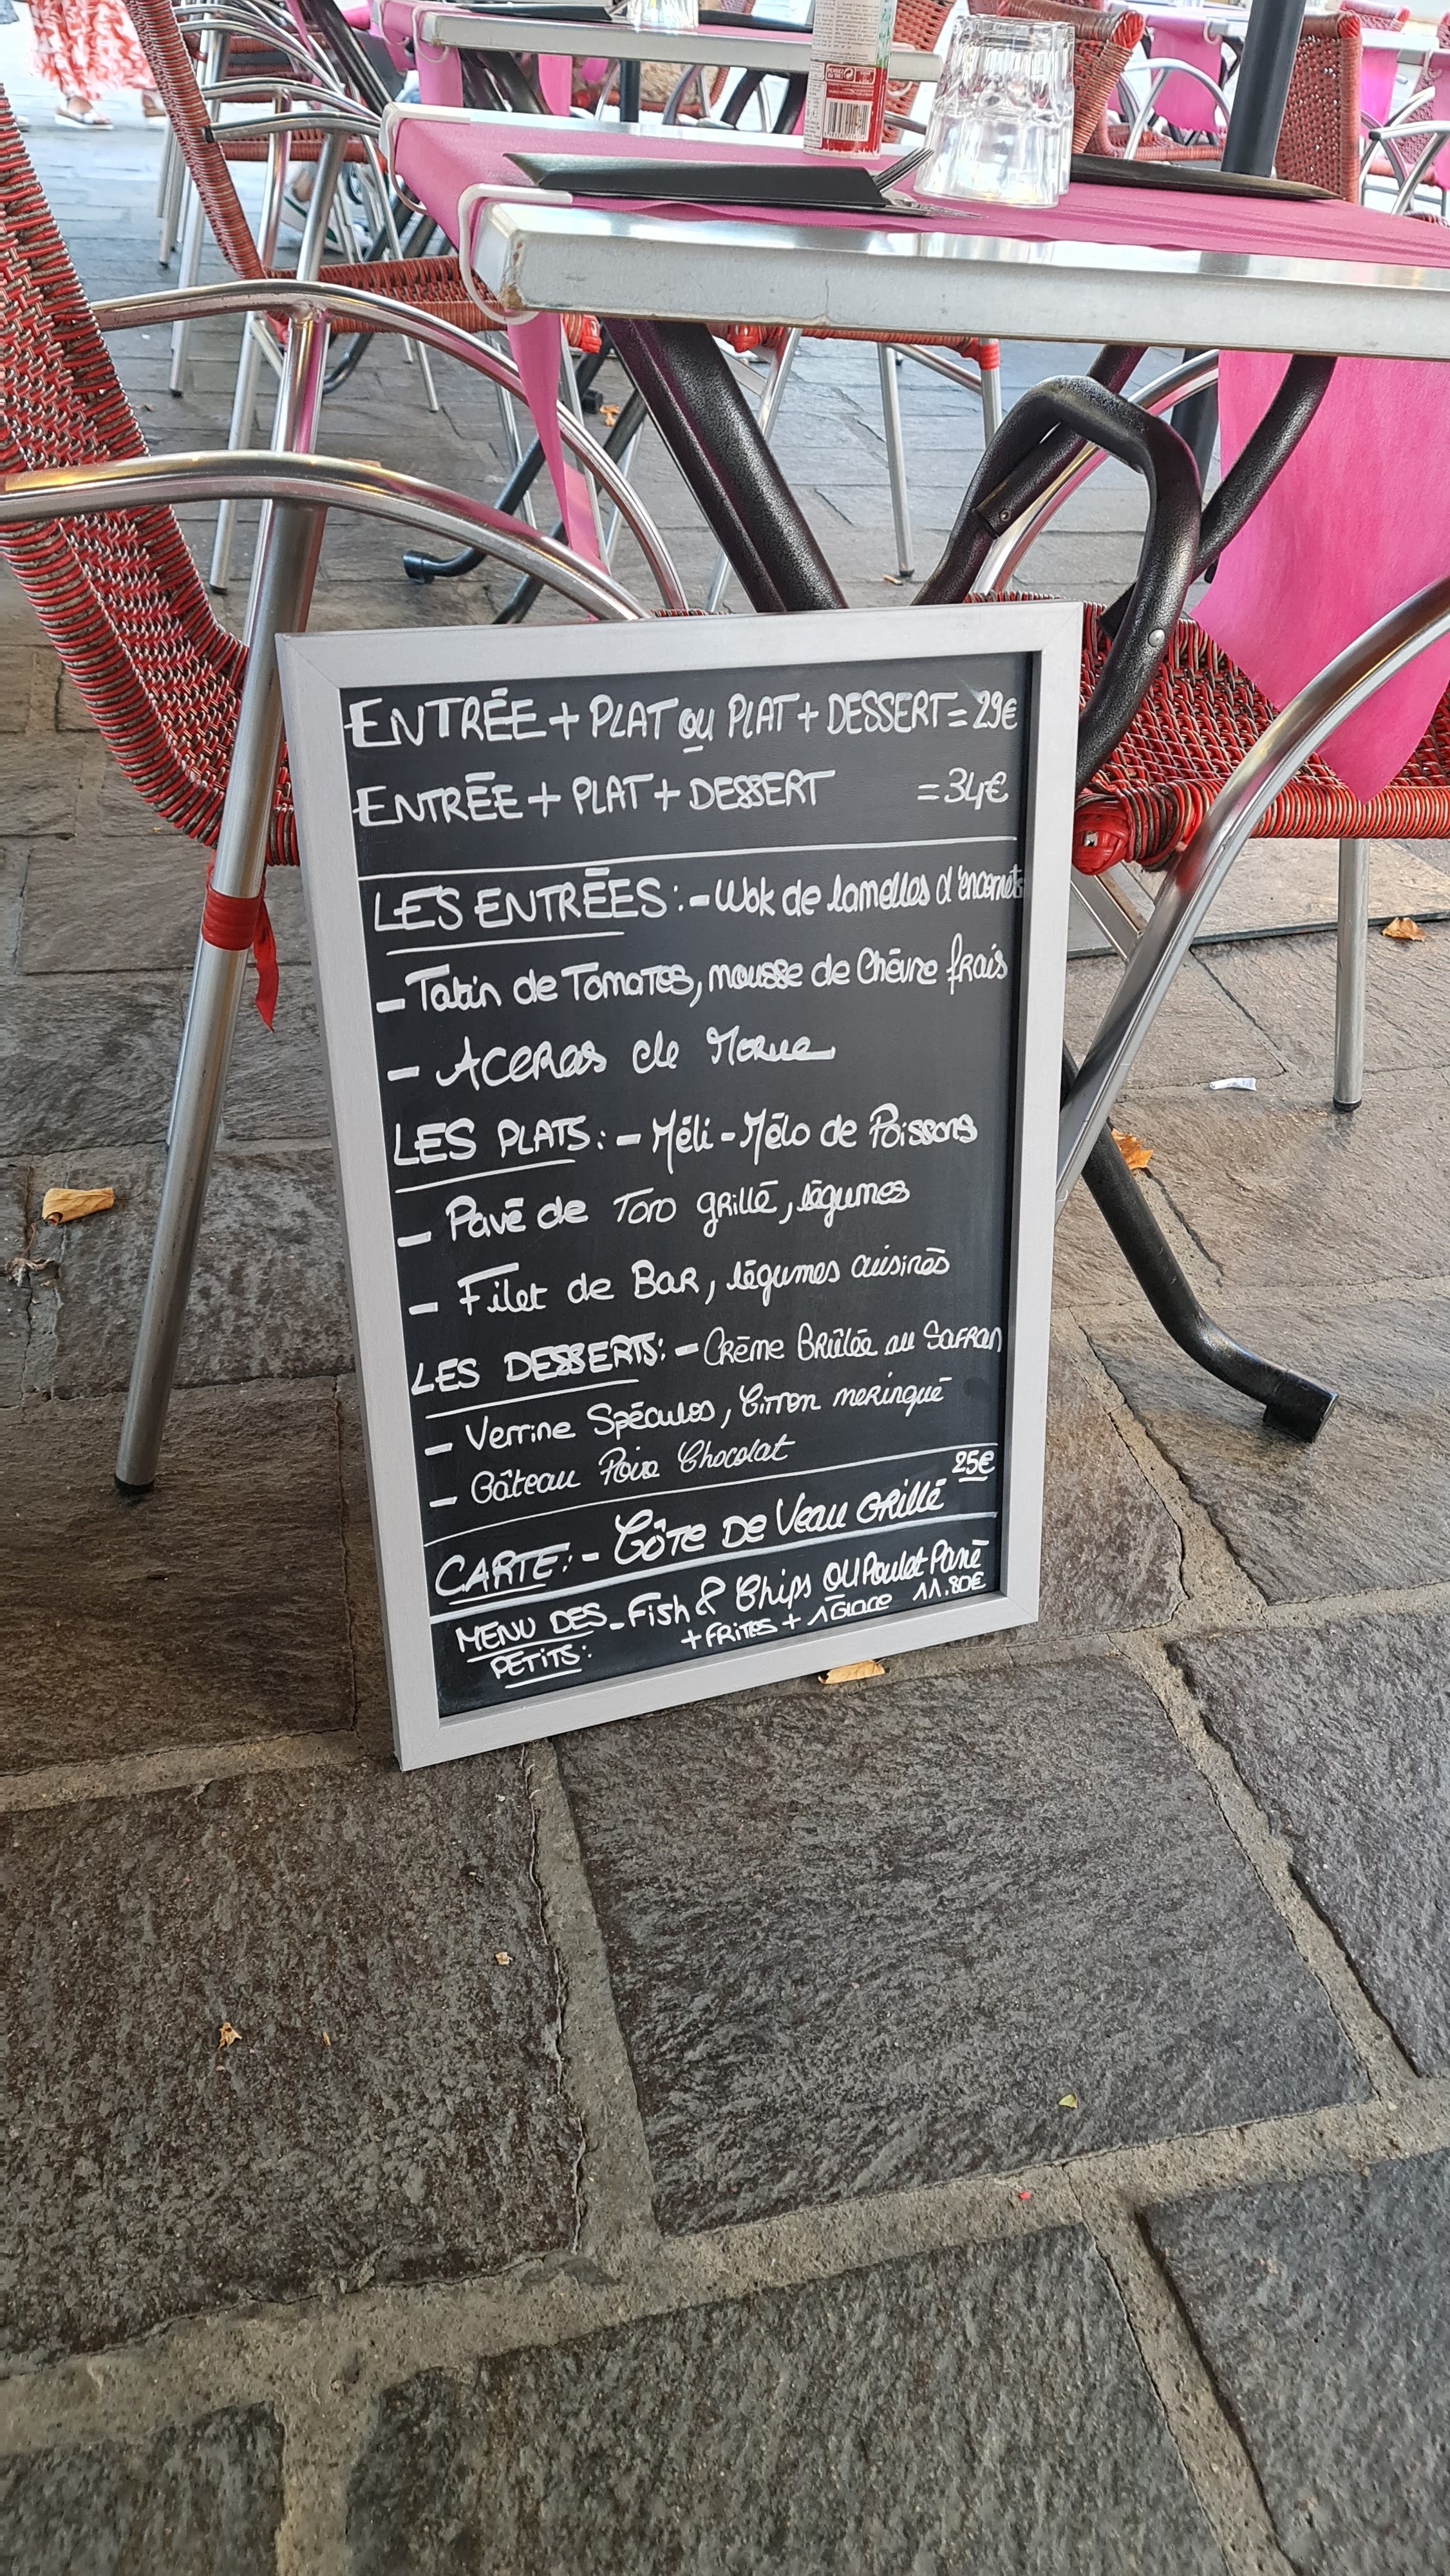 ENTRÉE + PLAT OU PLAT + DESSERT = 29€
ENTRÉE + PLAT + DESSERT = 34€
LES ENTRÉES : - Wok de lamelles d'encornets
- Tatin de Tomates, mousse de Chèvre frais
- Aceras de Morue
LES PLATS : - Méli-Mélo de Poissons
- Pavé de Toro grillé, légumes
- Filet de Bar, légumes cuisinés
LES DESSERTS : - Crème Brûlée au Safran
- Verrine Spéculos, Citron meringué
- Gâteau Poire Chocolat
CARTE : - Côte de Veau Grillé 25€
MENU DES PETITS : - Fish & Chips OU Poulet Pané
+ FRITES + 1 Glace 11.80€